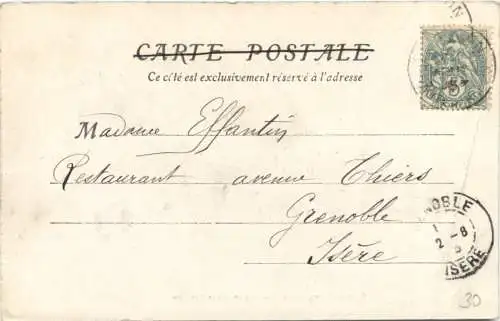 CARTE POSTALE
Ce côté est exclusivement réservé à l'adresse
Madame Effantin
Restaurant avenue Thiers
Grenoble
Isère
NOBLE
2 -8
ISÈRE
30